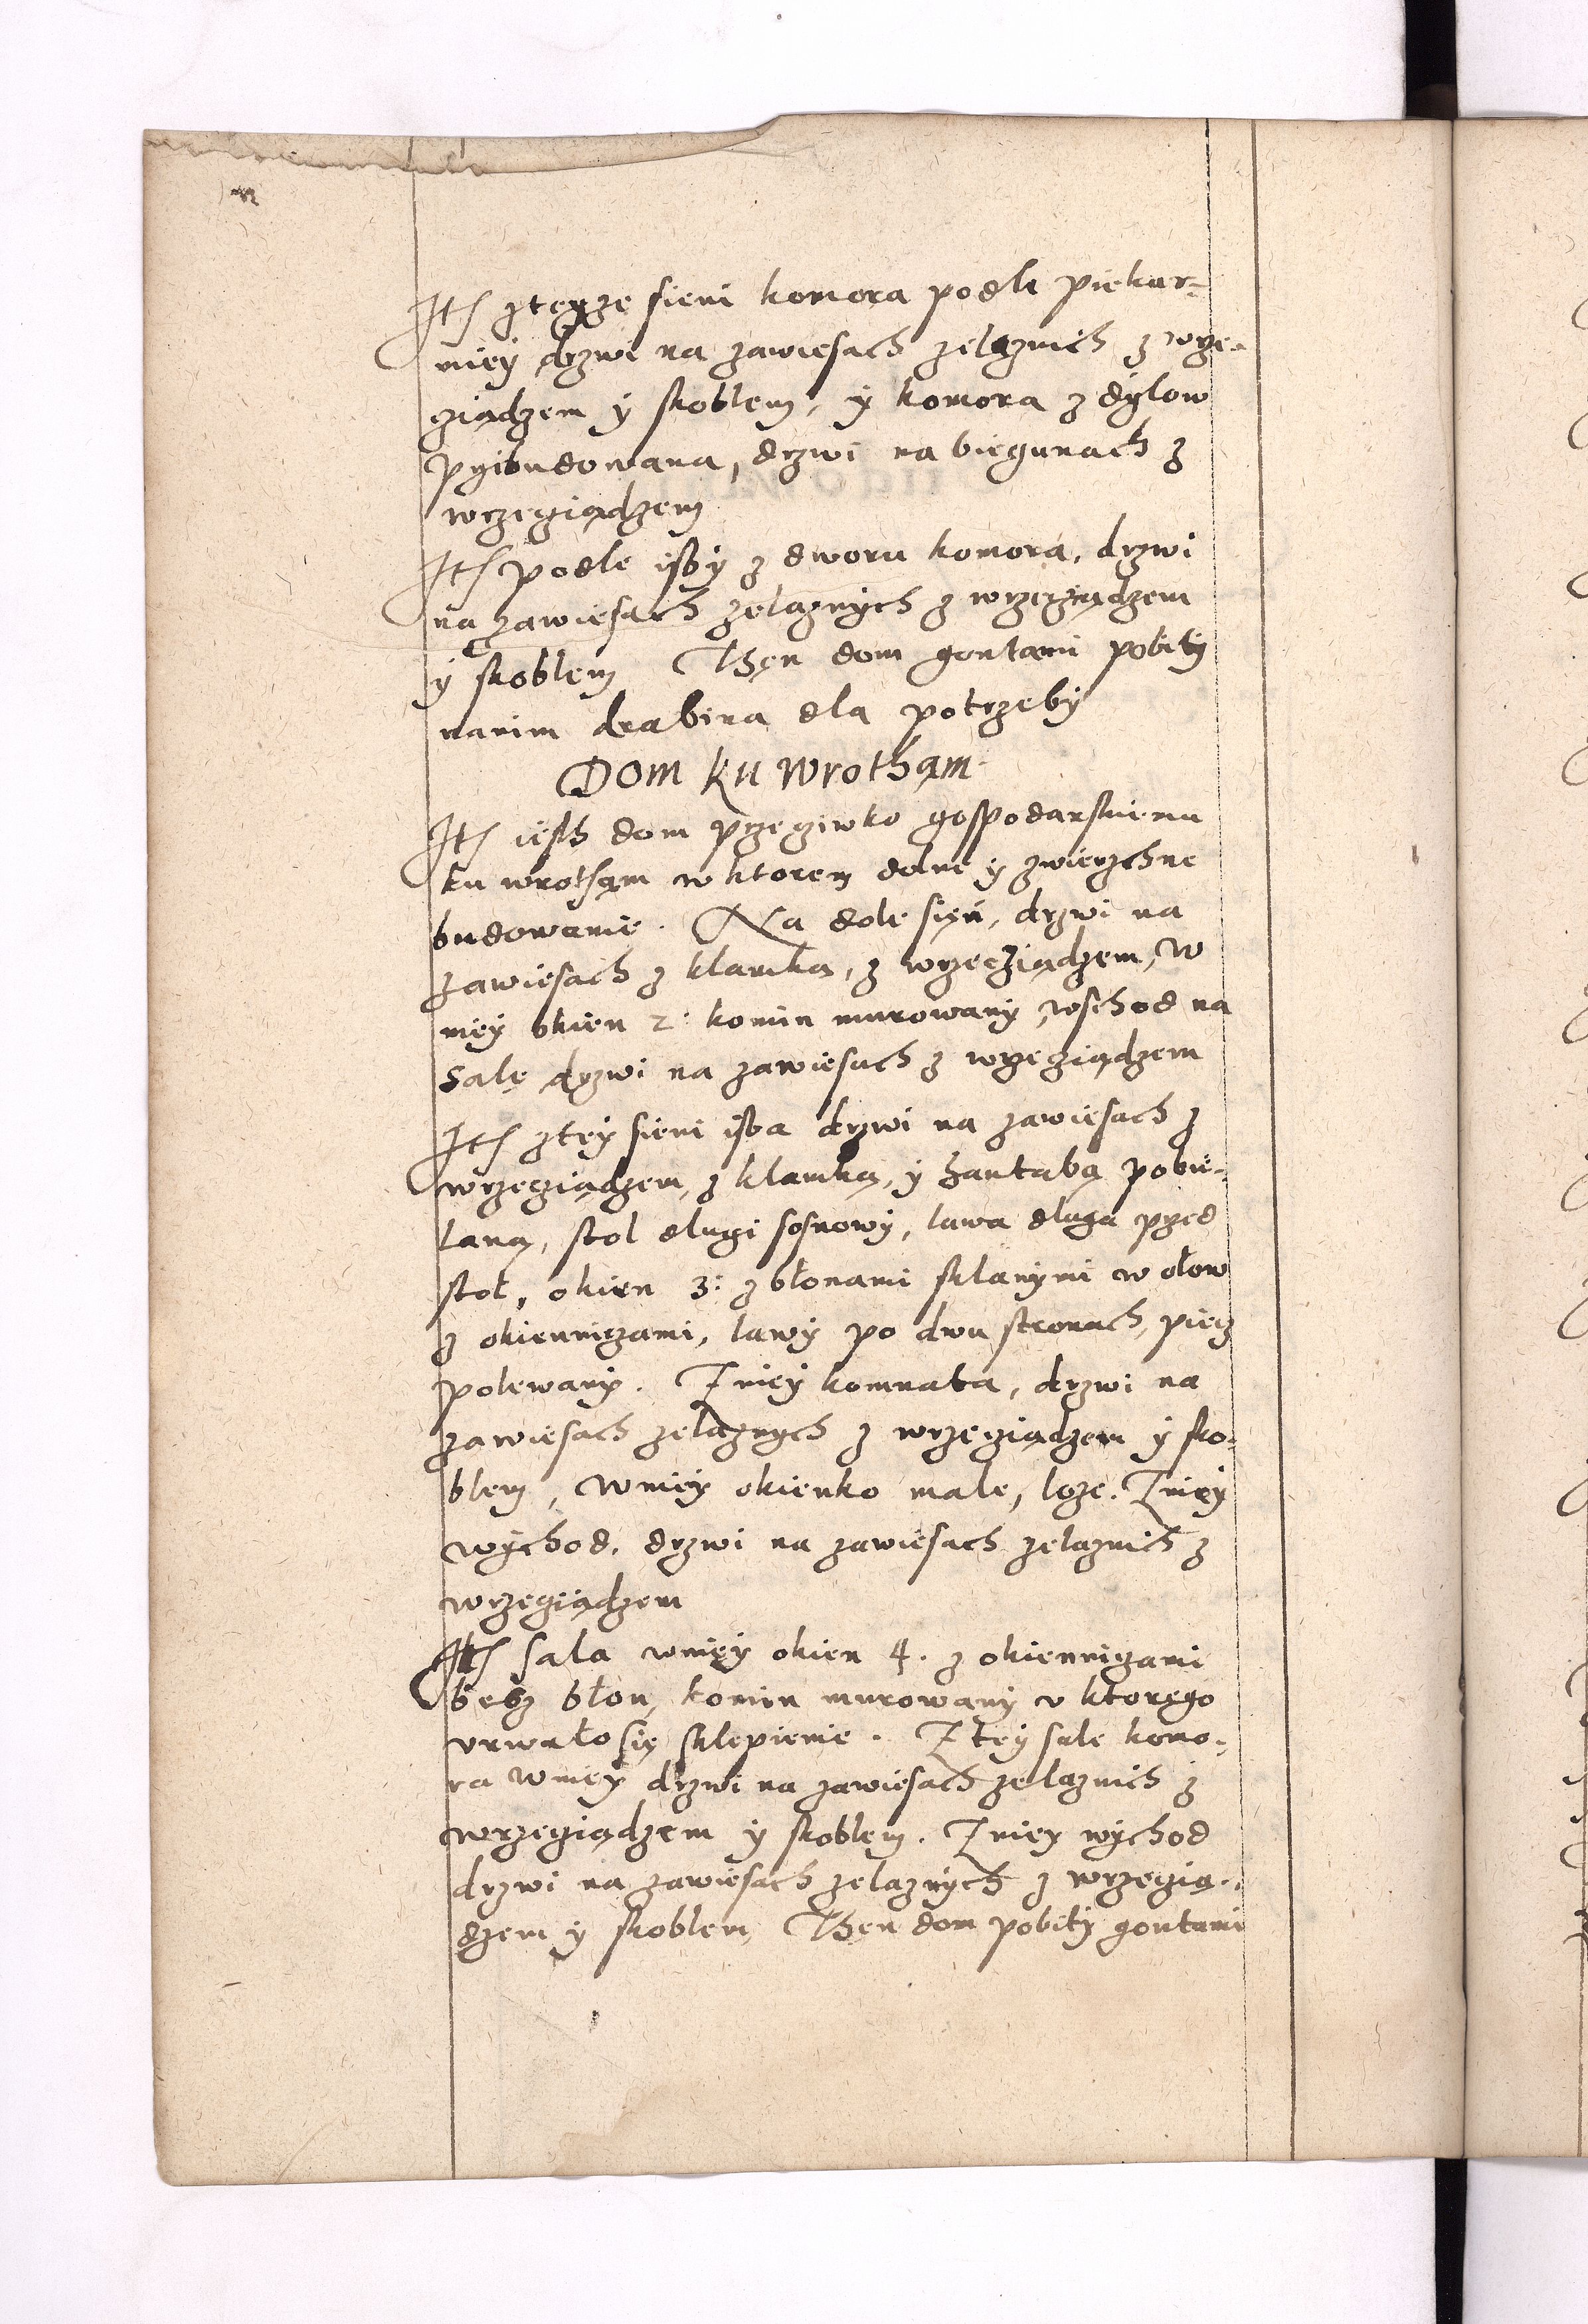 Ite(m) z teyze sieni komora podle piekar-
niey drzwi na zawiesach zelaznich z wrze-
cziądzem y skoblem, y komora z dylow
przibudowana, drzwi na biegunach z
wrzecziądzem
Ite(m) podle izby z dworu komora, drzwi
na zawiesach zelaznych z wrzecziądzem
y skoblem Then dom gontami pobity
nanim drabina dla potrzeby
Dom ku wrotham
Ite(m) iesth dom przecziwko gospodarskiemu
ku wrotham w ktorem dolne y zwierzchne
budowanie. Na dole sień, drzwi na
zawiesach z klamką, z wrzecziądzem, w
niey okien 2: komin murowany, wschod na
salę drzwi na zawiesach z wrzecziądzem
Ite(m) z tey sieni izba drzwi na zawiesach z
wrzecziądzem, z klamką, y hantabą pobie-
laną, stol dlugi sosnowy, lawa dluga przed
stoł, okien 3: z błonami sklanymi w ołow
z okienniczami, lawy po dwu stronach, piecz
polewany. Z niey komnata, drzwi na
zawiesach zelaznych z wrzecziądzem y sko-
blem, w niey okienko male, loze. Z niey
wychod, drzwi na zawiesach zelaznich z
wrzecziądzem
Ite(m) sala w niey okien 4. z okienniczami
besz błon, komin murowany v ktorego
vrwało się sklepienie. Z tey sale komo-
ra w niey drzwi na zawiesach zelaznich z
wrzecziądzem y skoblem. Z niey wychod
drzwi na zawiesach zelaznych z wrzeczią-
dzem y skoblem, Then dom pobity gontami